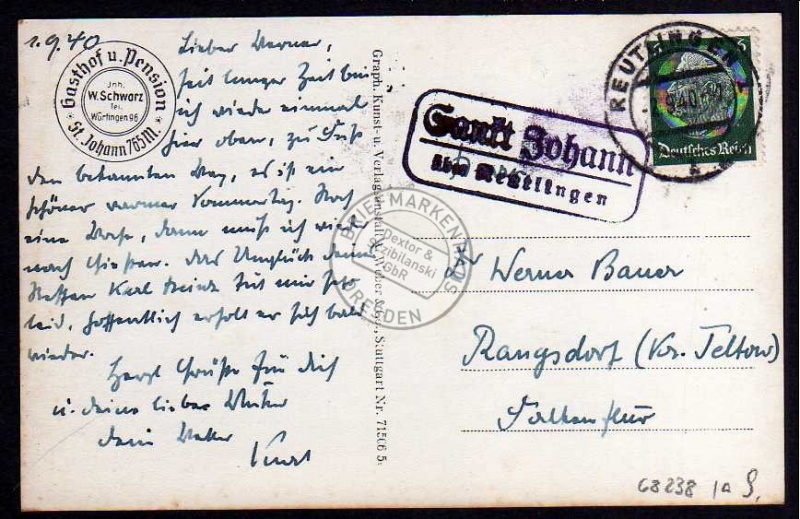 1.9.40
Gasthof u. Pension
Jnh.
W. Schwarz
Tel.
Würtingen 96
St. Johann 765 M.
Lieber Werner,
seit langer Zeit bin
ich wieder einmal
hier oben, zu Fuß
den bekannten Weg, es ist ein
schöner warmer Sommertag. Noch
eine Woche, dann muß ich wieder
nach Gießen. Das Unglück deines
Neffen Karl Heinz tut mir sehr
leid, hoffentlich erholt er sich bald
wieder.
Herzl. Grüße für Dich
u. deine liebe Mutter
dein Vetter
Kurt
Graph. Kunst- u. Verlagsanstalt Weber & Stuttgart Nr. 71506 5
Sankt Johann
über Reutlingen
REUTLINGEN 1
Deutsches Reich
BRIEFMARKENHAUS
Dextor &
Zibilanski
GbR
DRESDEN
Werner Bauer
Rangsdorf (Kr. Teltow)
Falkenflur
68238 1A S.